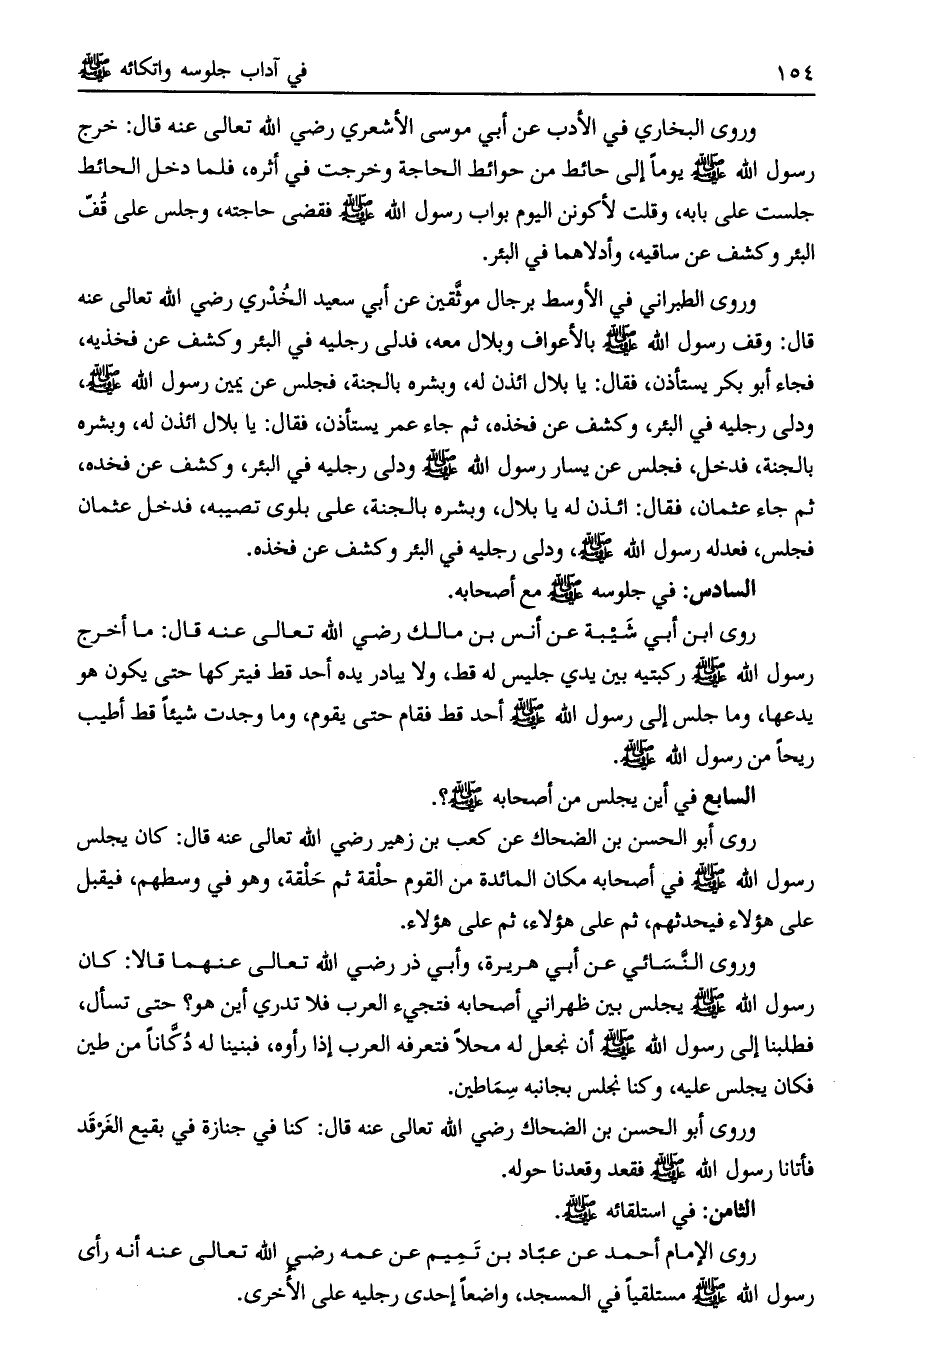 ١٥٤ في آداب جلوسه واتكائه ﷺ
وروى البخاري في الأدب عن أبي موسى الأشعري رضي الله تعالى عنه قال: خرج
رسول الله ﷺ يوماً إلى حائط من حوائط الحاجة وخرجت في أثره، فلما دخل الحائط
جلست على بابه، وقلت لأكونن اليوم بواب رسول الله ﷺ فقضى حاجته، وجلس على قُفّ
البئر وكشف عن ساقيه، وأدلاهما في البئر.
وروى الطبراني في الأوسط برجال موثَّقين عن أبي سعيد الخُدْري رضي الله تعالى عنه
قال: وقف رسول الله ﷺ بالأعواف وبلال معه، فدلى رجليه في البئر وكشف عن فخذيه،
فجاء أبو بكر يستأذن، فقال: يا بلال ائذن له، وبشره بالجنة، فجلس عن يمين رسول الله ﷺ،
ودلى رجليه في البئر، وكشف عن فخذه، ثم جاء عمر يستأذن، فقال: يا بلال ائذن له، وبشره
بالجنة، فدخل، فجلس عن يسار رسول الله ﷺ ودلى رجليه في البئر، وكشف عن فخده،
ثم جاء عثمان، فقال: ائذن له يا بلال، وبشره بالجنة، على بلوى تصيبه، فدخل عثمان
فجلس، فعدله رسول الله ﷺ، ودلى رجليه في البئر وكشف عن فخذه.
السادس: في جلوسه ﷺ مع أصحابه.
روى ابن أبي شَيْبة عن أنس بن مالك رضي الله تعالى عنه قال: ما أخرج
رسول الله ﷺ ركبتيه بين يدي جليس له قط، ولا يبادر يده أحد قط فيتركها حتى يكون هو
يدعها، وما جلس إلى رسول الله ﷺ أحد قط فقام حتى يقوم، وما وجدت شيئاً قط أطيب
ريحاً من رسول الله ﷺ.
السابع في أين يجلس من أصحابه ﷺ؟.
روى أبو الحسن بن الضحاك عن كعب بن زهير رضي الله تعالى عنه قال: كان يجلس
رسول الله ﷺ في أصحابه مكان المائدة من القوم حلْقة ثم حَلْقة، وهو في وسطهم، فيقبل
على هؤلاء فيحدثهم، ثم على هؤلاء، ثم على هؤلاء.
وروى النَّسَائي عن أبي هريرة، وأبي ذر رضي الله تعالى عنهما قالا: كان
رسول الله ﷺ يجلس بين ظهراني أصحابه فتجيء العرب فلا تدري أين هو؟ حتى تسأل،
فطلبنا إلى رسول الله ﷺ أن نجعل له محلاً فتعرفه العرب إذا رأوه، فبنينا له دُكَّاناً من طين
فكان يجلس عليه، وكنا نجلس بجانبه سِمَاطين.
وروى أبو الحسن بن الضحاك رضي الله تعالى عنه قال: كنا في جنازة في بقيع الغَرْقَد
فأتانا رسول الله ﷺ فقعد وقعدنا حوله.
الثامن: في استلقائه ﷺ.
روى الإمام أحمد عن عبّاد بن تَمِيم عن عمه رضي الله تعالى عنه أنه رأى
رسول الله ﷺ مستلقياً في المسجد، واضعاً إحدى رجليه على الأُخرى.